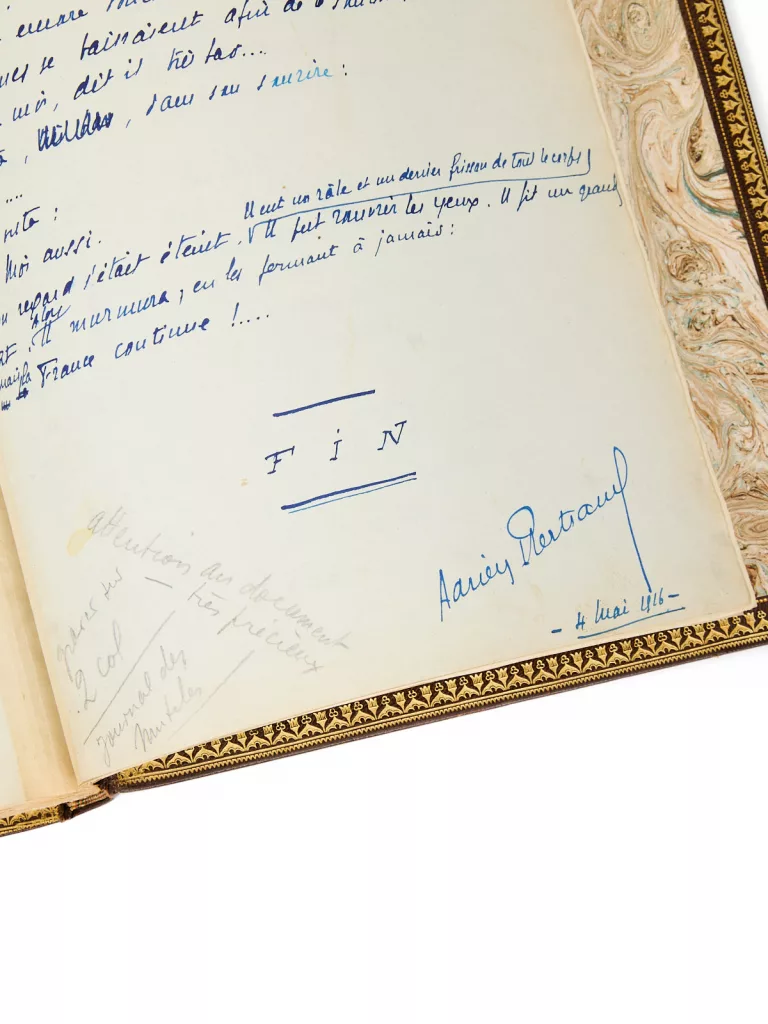 encore
se baissaient afin de
moi, dit il très bas...
, dans son sourire :
....
Moi aussi.
Il eut un râle et un dernier frisson de tout le corps
regard s'était éteint. Il put rouvrir les yeux. Il fit un grand
Alors
Il murmura, en les fermant à jamais :
mais la
France continue !....
FIN
Adrien Bertrand
- 4 Mai 1916 -
attention au document
- très précieux
sur
2 col
journal des
mutilés